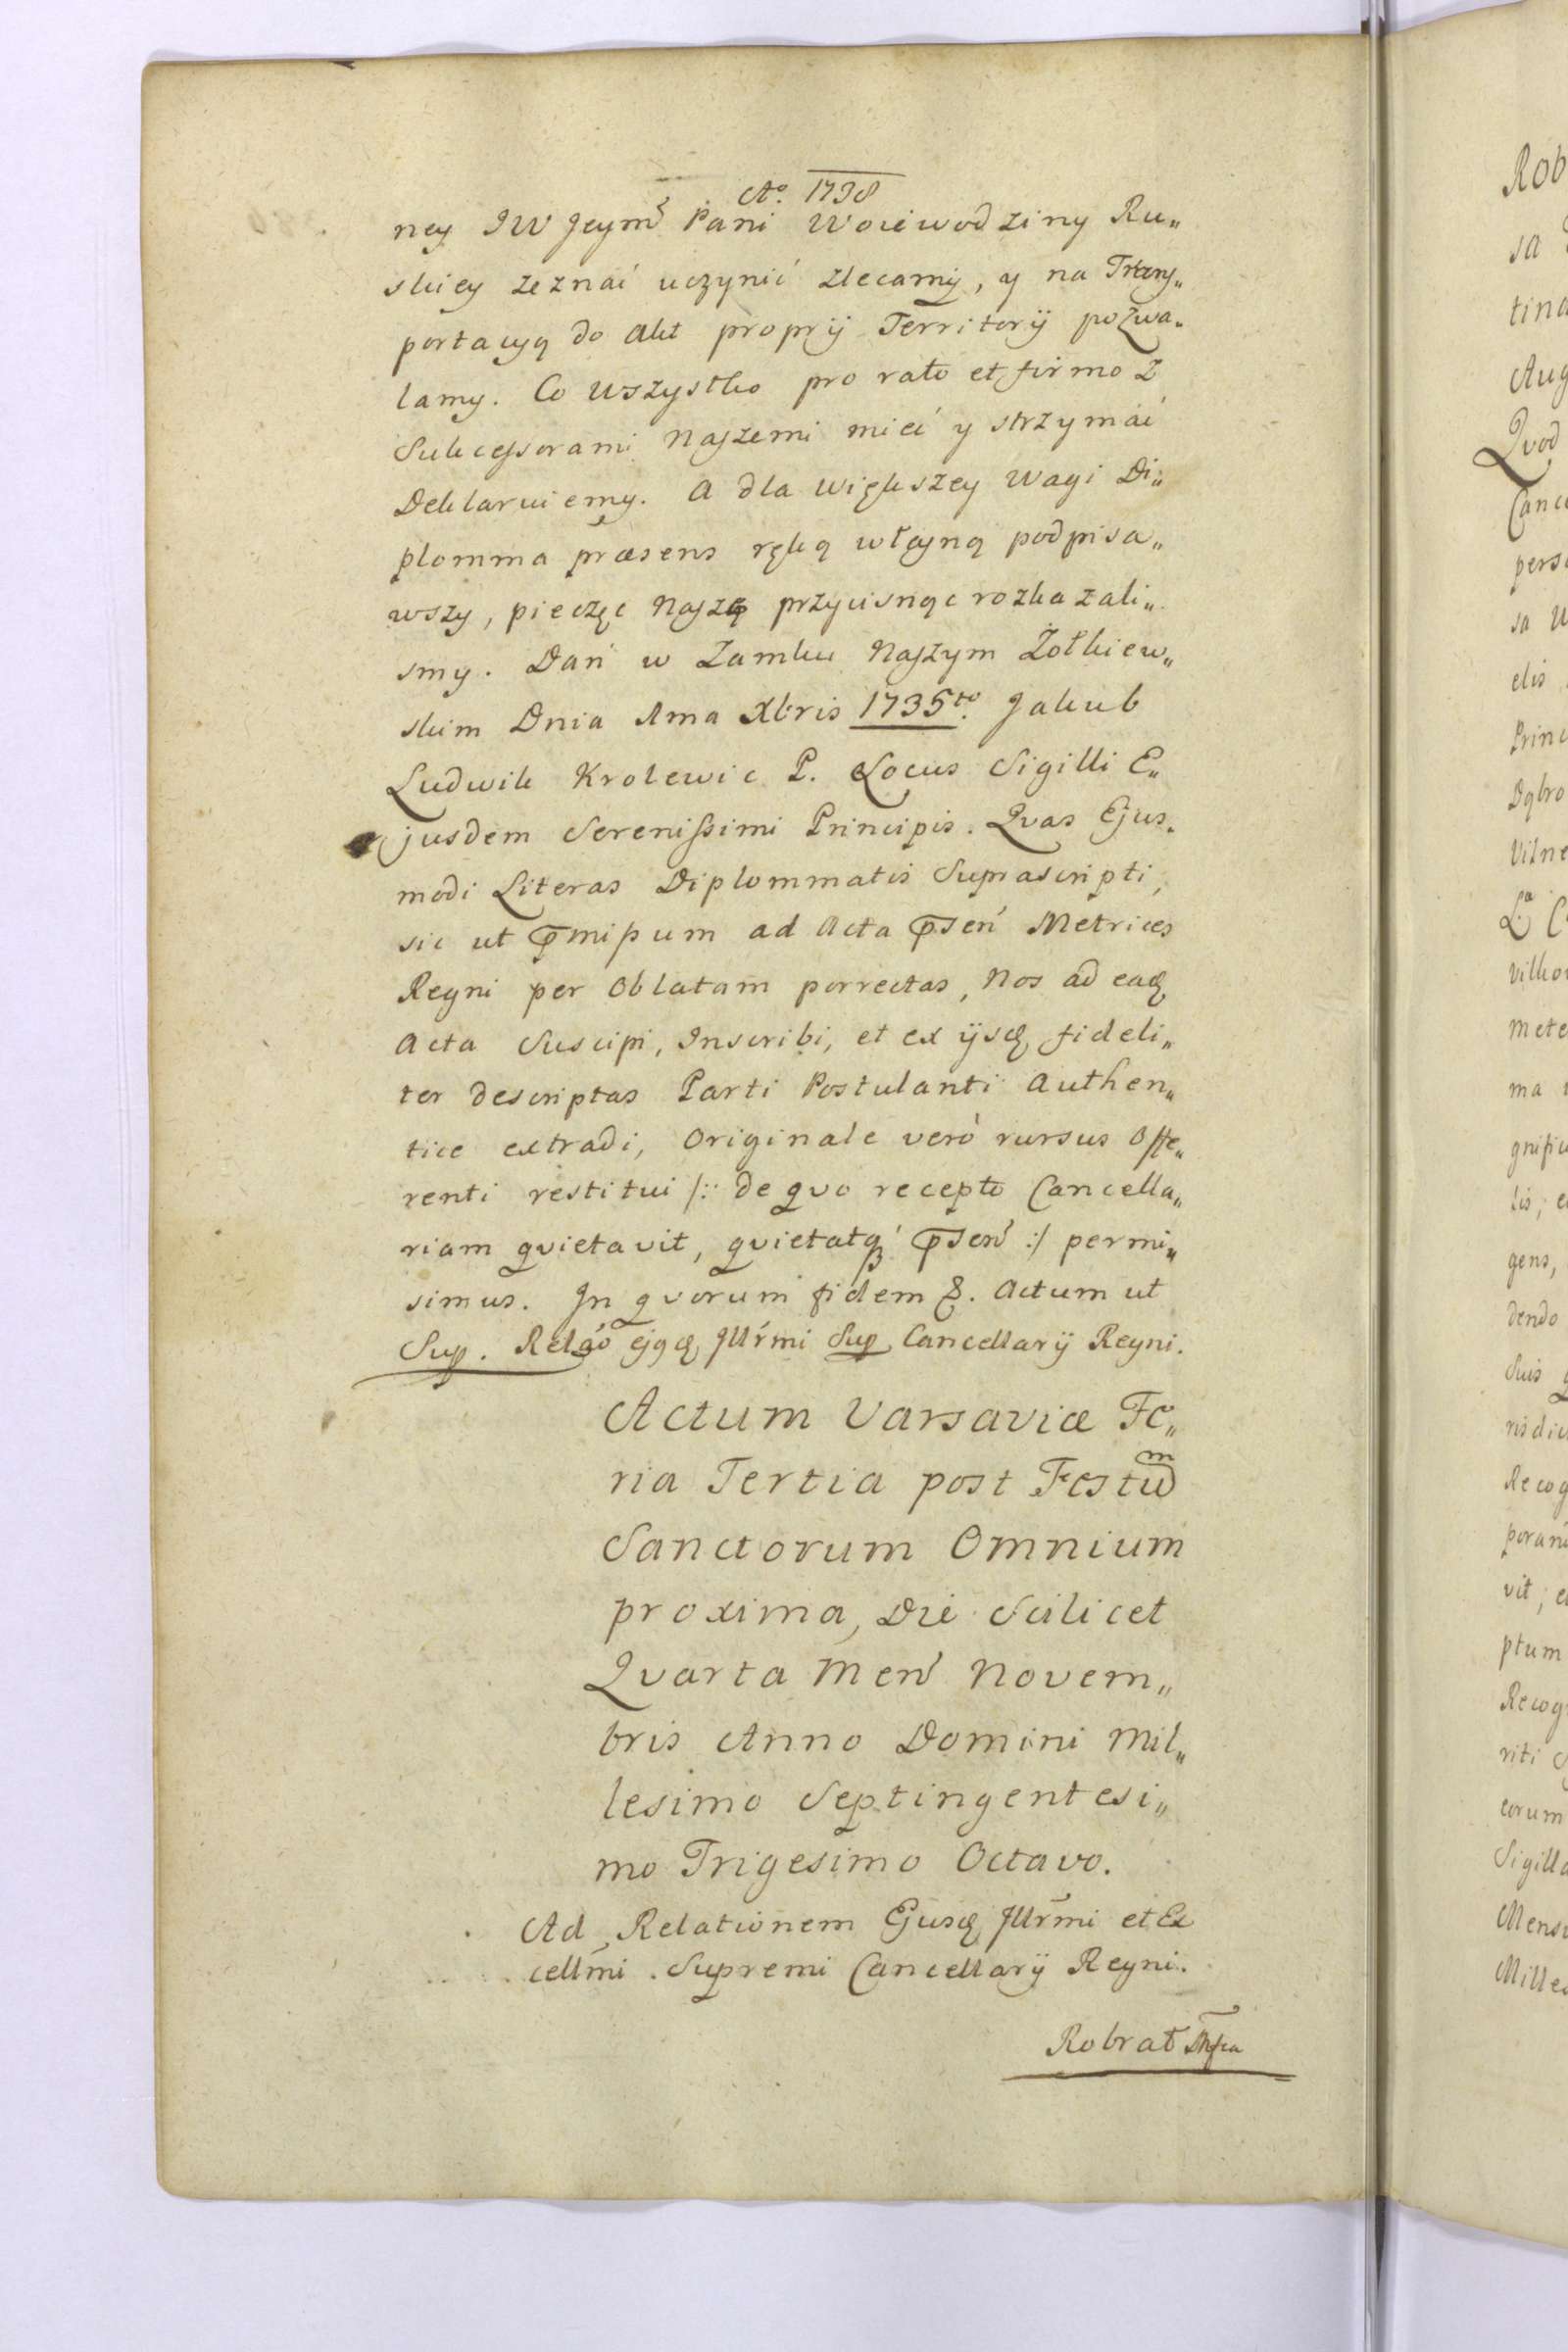 Aº. 1738
ney JW Jeym̃ Pani Woiewodziny Ru„
skiey zeznać uczynić zlecamy, y na Trans„
portacyą do Akt proprij Territorij pozwa„
lamy. Co wszystko pro rato et firmo z
Sukcessorami Naszemi mieć y strzymać
Deklaruiemy. A dla większey wagi Di„
plomma præsens ręką własną podpisa„
wszy, pieczęc Naszą przycisnąc rozkazali„
smy. Dań w Zamku Naszym Żołkiew„
skim Dnia 1ma Xbris 1735to. Jakub
Ludwik Krolewic P. Locus Sigilli E„
jusdem Serenissimi Principis. Quas Ejus„
modi Literas Diplommatis Suprascripti,
sic ut p̄missum ad Acta p̄sen̄ Metrices
Regni per Oblatam porrectas, Nos ad eadȩ
Acta Suscipi, Inscribi, et ex ijsdȩ fideli„
ter descriptas Parti Postulanti Authen„
tice extradi, Originale verò rursus Offe„
renti restitui /: de quo recepto Cancella„
riam quietavit, quietatqȝ p̄sen̄ :/ permi„
simus. In quorum fidem &. Actum ut
Sup. Relaõ ejqdȩ Jllr̃mi Sup Cancellarij Regni.
Actum Varsaviæ Fe„
ria Tertia post Festum
Sanctorum Omnium
proxima, Die Scilicet
Quarta Men̄ Novem„
bris Anno Domini Mil„
lesimo Septingentesi„
mo Trigesimo Octavo.
Ad Relationem Ejusdȩ Jllr̃mi et Ex
cellm̃i Supremi Cancellarij Regni.
Robrat
Rob
sa
tina
Aug
Quod
Canc
pers
sa
elis
Princ
Dąbro
Vilne
Lª C
vilko
mete
ma
gnific
lis, e
gens,
dendo
Suis
risdic
Recog
poran
vit, e
ptum
Recog
riti
eorum
Sigill
Mens
Mille